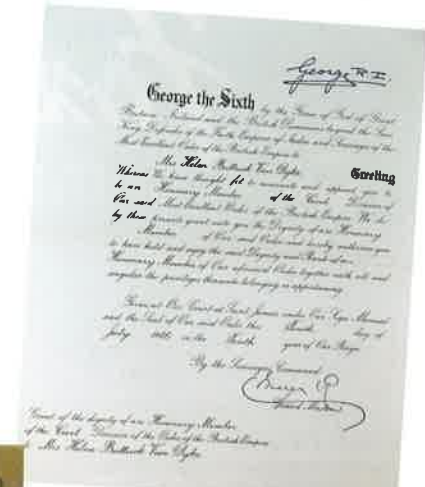 George R.I.
George the Sixth by the Grace of God of Great
Britain Ireland and the British Dominions beyond the Seas
King Defender of the Faith Emperor of India and Sovereign of the
Most Excellent Order of the British Empire to
Mrs Helen Van Dyke
Greeting
Whereas We have thought fit to nominate and appoint you to
be an Honorary Member of the Civil Division of
Our said Most Excellent Order of the British Empire We do
by these presents grant unto you the Dignity of an Honorary
Member of Our said Order and hereby authorise you
to have hold and enjoy the said Dignity and Rank of an
Honorary Member of Our aforesaid Order together with all and
singular the privileges thereunto belonging or appertaining
Given at Our Court at Saint James's under Our Sign Manual
and the Seal of Our said Order this day of
July in the year of Our Reign
By the Sovereign's Command
Grant of the dignity of an Honorary Member
of the Civil Division of the Order of the British Empire
to Mrs Helen Van Dyke